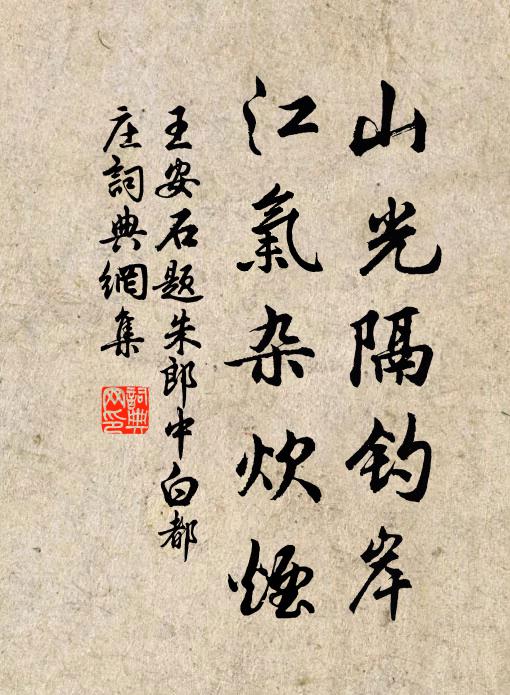 山光隔钓岸
江氣杂炊煙
王安石题朱郎中白都
庄詞典網集
詞典
网印